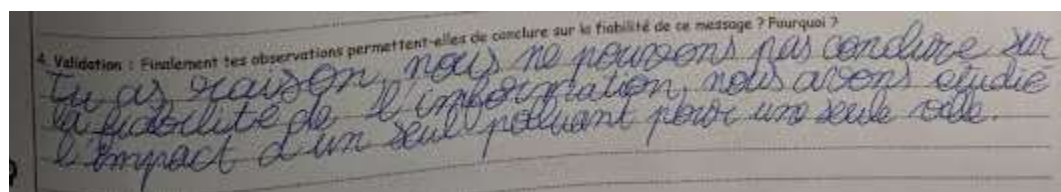 4. Validation : Finalement tes observations permettent-elles de conclure sur la fiabilité de ce message ? Pourquoi ?
Tu as raison, nous ne pouvons pas conclure sur
la fiabilité de l'information, nous avons étudié
l'impact d'un seul polluant pour une seule ville.